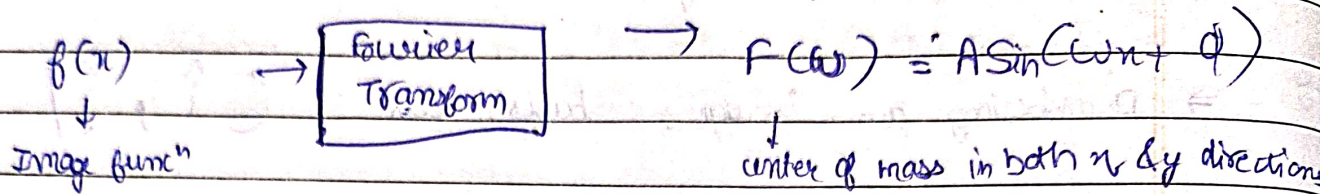 f(x) → Fourier Transform → F(ω) = A Sin(ωx + φ)
↓ ↓
Image funcⁿ center of mass in both x & y directions